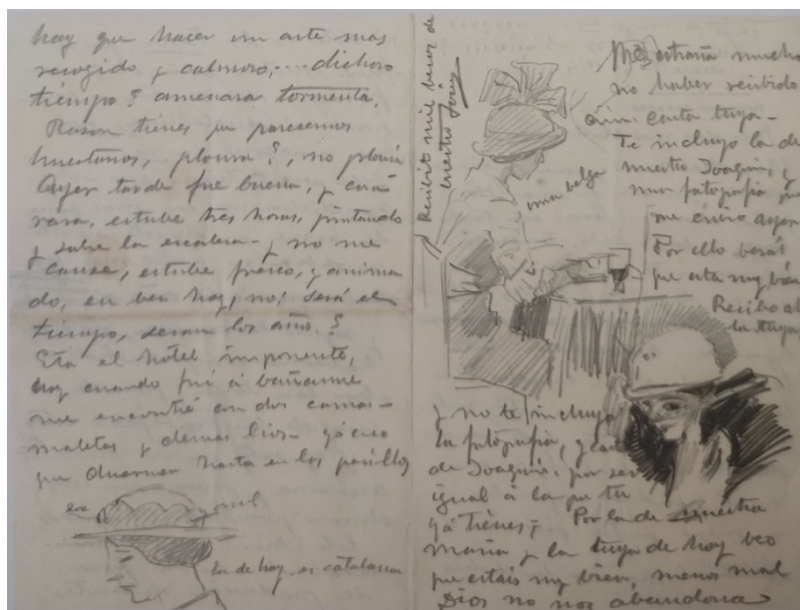 hay que hacer un arte mas
recogido y calmoso,... dichoso
tiempo? amenara tormenta.
Rason tienes que parecemos
huertanos, ploura?, no ploura
Ayer tarde fue buena, y cosa
rara, estube tres horas, pintando
y sobre la escalera - y no me
canse, estube fresco, y anima
do, en ben hoy, no! será el
tiempo, seran los años.?
Esta el hotel imponente,
hoy cuando fui á bañarme
me encontré con dos camas -
maletas y demas lios - yá creo
que duermen hasta en los pasillos
rosa
azul
la de hoy es catalana
Recibit mil besos de
nuestro Joaq
Me estraña mucho
no haber recibido
aun carta tuya -
Te incluyo la de
nuestro Joaquin, y
una fotografia que
me envio ayer
Por ello berás
que esta muy bien
Recibo al
la tuya
una belga
y no te incluyo
la fotografia, y carta
de Joaquin, por ser
igual á la que tu
yá tienes,
Por la de nuestra
Maria y la tuya de hoy beo
que estais muy bien, menos mal
Dios no nos abandona